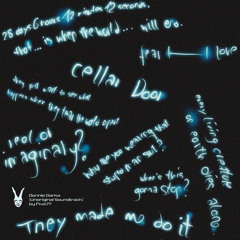 28 days 6 hours 42 minutes 12 seconds.
that... is when the world... will end.
fear I——I love
cellar Door
they just want to see what
happens when they tear the world apart
real or
imaginary?
why are you wearing that
stupid man suit?
every living creature
on earth dies alone.
where is this
gonna stop?
Donnie Darko
(Unoriginal Soundtrack)
They made me do it